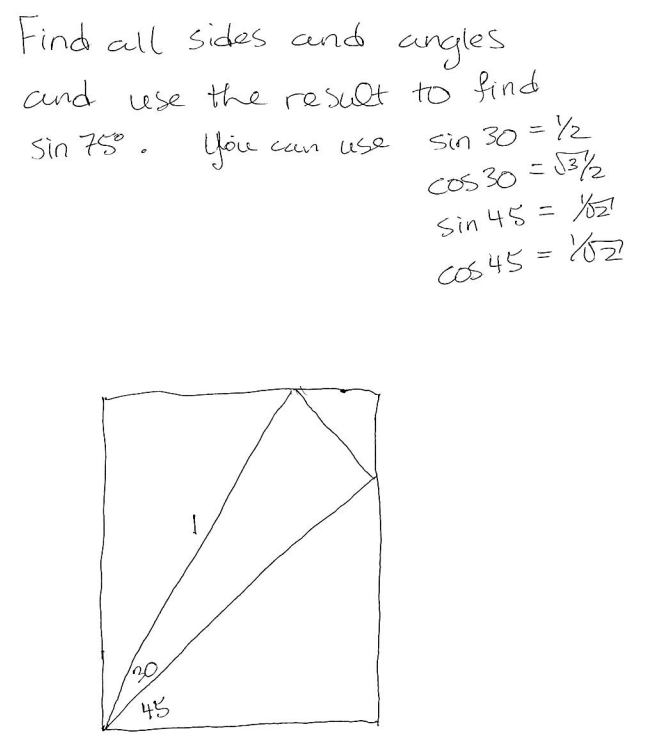 Find all sides and angles
and use the result to find
sin 75°. You can use sin 30 = 1/2
cos 30 = √3/2
sin 45 = 1/√2
cos 45 = 1/√2
1
30
45